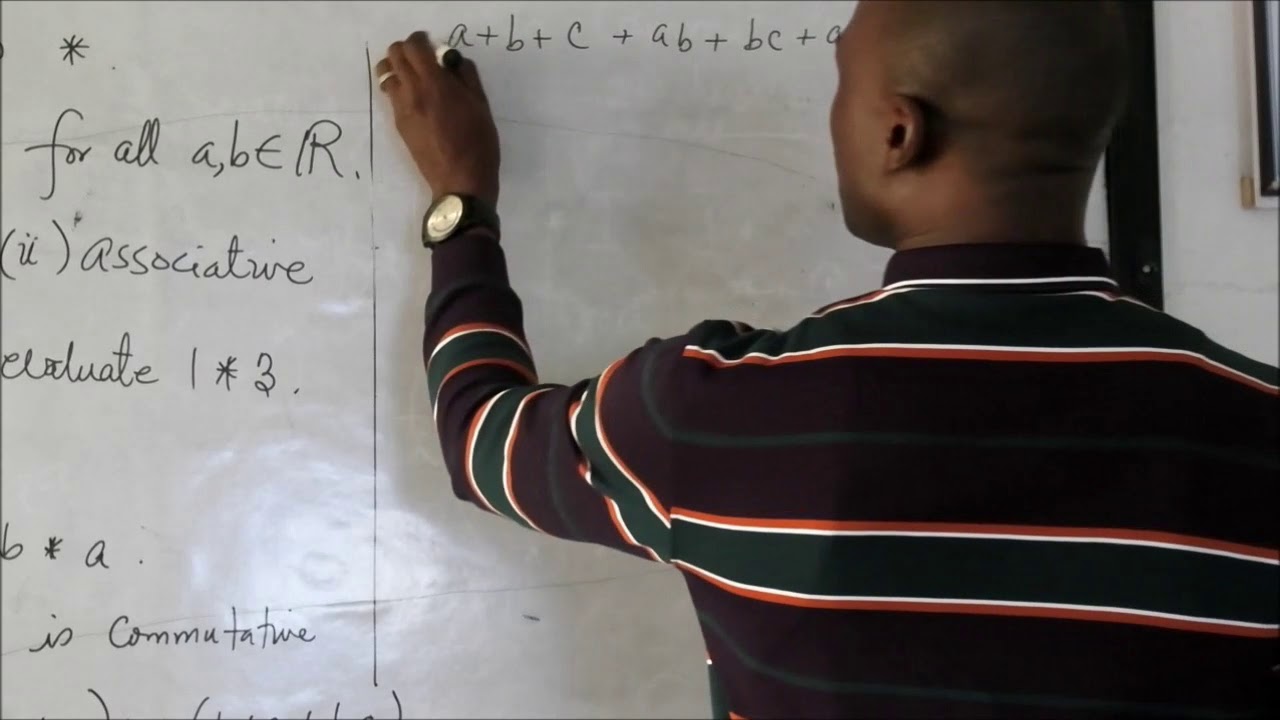 *.
for all a,b∈ℝ.
(ii) associative
evaluate 1 * 3.
b * a.
is commutative
a+b+c + ab + bc + a